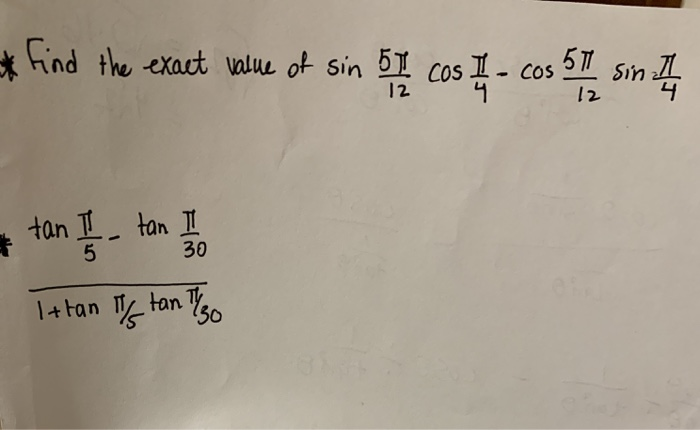 * Find the exact value of sin 5π/12 cos π/4 - cos 5π/12 sin π/4
* tan π/5 - tan π/30
1 + tan π/5 tan π/30